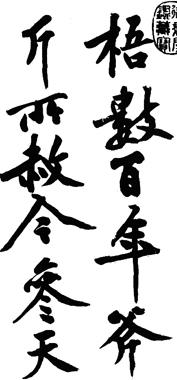 梧數百年斧
斤所赦今參天